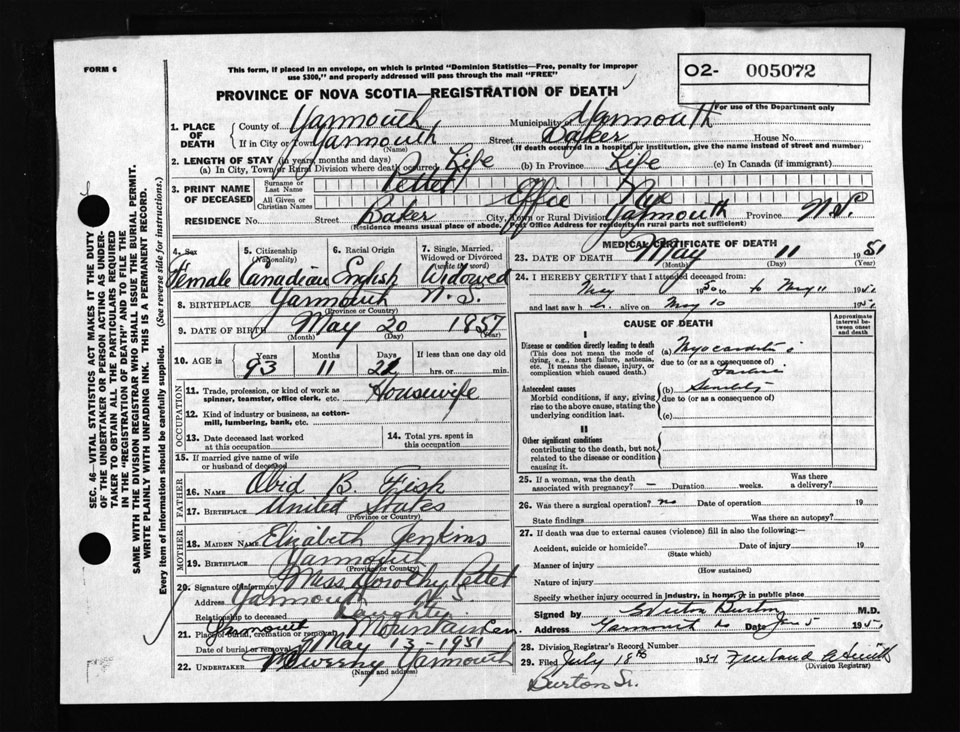 FORM 6
This form, if placed in an envelope, on which is printed "Dominion Statistics—Free, penalty for improper
use $300," and properly addressed will pass through the mail "FREE"
O2- 005072
For use of the Department only
PROVINCE OF NOVA SCOTIA—REGISTRATION OF DEATH
1. PLACE OF DEATH
County of Yarmouth Municipality of Yarmouth
If in City or Town Yarmouth (Name) Street Baker House No.
(If death occurred in a hospital or institution, give the name instead of street and number)
2. LENGTH OF STAY (in years, months and days)
(a) In City, Town or Rural Division where death occurred Life (b) In Province Life (c) In Canada (if immigrant)
3. PRINT NAME OF DECEASED
Surname or Last Name Pettet
All Given or Christian Names Effie
RESIDENCE No. Street Baker City, Town or Rural Division Yarmouth Province N.S.
(Residence means usual place of abode. Post Office Address for residents in rural parts not sufficient)
4. Sex Female
5. Citizenship (Nationality) Canadian
6. Racial Origin English
7. Single, Married, Widowed or Divorced (write the word) Widowed
8. BIRTHPLACE Yarmouth N.S.
(Province or Country)
9. DATE OF BIRTH May 20 1857
(Month) (Day) (Year)
10. AGE in Years 93 Months 11 Days 21 If less than one day old hrs. or min.
OCCUPATION
11. Trade, profession, or kind of work as spinner, teamster, office clerk, etc. Housewife
12. Kind of industry or business, as cotton-mill, lumbering, bank, etc.
13. Date deceased last worked at this occupation
14. Total yrs. spent in this occupation
15. If married give name of wife or husband of deceased
FATHER
16. NAME Obid B. Fish
17. BIRTHPLACE United States
(Province or Country)
MOTHER
18. MAIDEN NAME Elizabeth Jenkins
19. BIRTHPLACE Yarmouth
(Province or Country)
20. Signature of informant Miss Dorothy Pettet
Address Yarmouth N.S.
Relationship to deceased Daughter
21. Place of burial, cremation or removal Yarmouth Mountain Cem.
Date of burial or removal May 13 - 1951
22. UNDERTAKER Sweeny Yarmouth
(Name and Address)
MEDICAL CERTIFICATE OF DEATH
23. DATE OF DEATH May 11 1951
(Month) (Day) (Year)
24. I HEREBY CERTIFY that I attended deceased from
May 1950 to May 11 195
and last saw h alive on May 10 195
CAUSE OF DEATH
Approximate interval between onset and death
I
Disease or condition directly leading to death
(This does not mean the mode of dying, e.g., heart failure, asthenia, etc. It means the disease, injury, or complication which caused death.)
(a) Myocarditis
due to (or as a consequence of)
Antecedent causes
Morbid conditions, if any, giving rise to the above cause, stating the underlying condition last.
(b) Senility
due to (or as a consequence of)
(c)
II
Other significant conditions
contributing to the death, but not related to the disease or condition causing it.
25. If a woman, was the death associated with pregnancy? — Duration weeks. Was there a delivery?
26. Was there a surgical operation? no Date of operation 19
State findings Was there an autopsy?
27. If death was due to external causes (violence) fill in also the following:—
Accident, suicide or homicide? Date of injury 19
(State which)
Manner of injury
(How sustained)
Nature of injury
Specify whether injury occurred in industry, in home, or in public place
Signed by Burton M.D.
Address Yarmouth Date Jan 5 195
28. Division Registrar's Record Number
29. Filed July 18th 1951
(Division Registrar)
Burton Sr.
SEC. 46—VITAL STATISTICS ACT MAKES IT THE DUTY
OF THE UNDERTAKER OR PERSON ACTING AS UNDER-
TAKER TO OBTAIN ALL THE PARTICULARS REQUIRED
IN THE "REGISTRATION OF DEATH" AND TO FILE THE
SAME WITH THE DIVISION REGISTRAR WHO SHALL ISSUE THE BURIAL PERMIT.
WRITE PLAINLY WITH UNFADING INK. THIS IS A PERMANENT RECORD.
Every item of information should be carefully supplied. (See reverse side for instructions.)